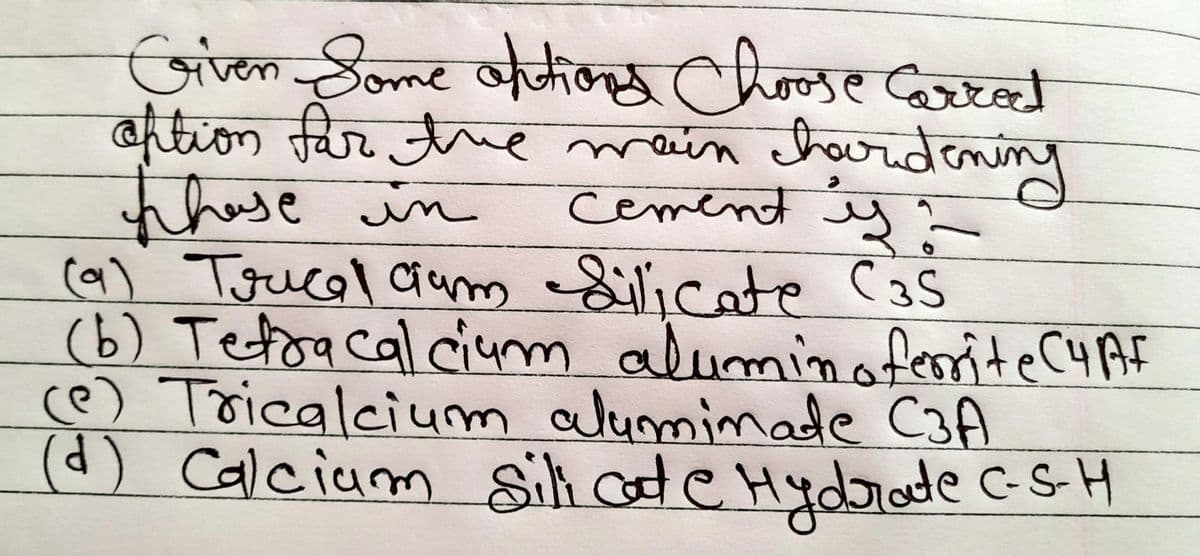 Given Some options Choose Correct
option for the main hardening
phase in cement is :-
(a) Trical cium Silicate C3S
(b) Tetra cal cium alumin oferrite C4AF
(c) Tricalcium aluminate C3A
(d) Calcium Sili cate Hydrate C-S-H